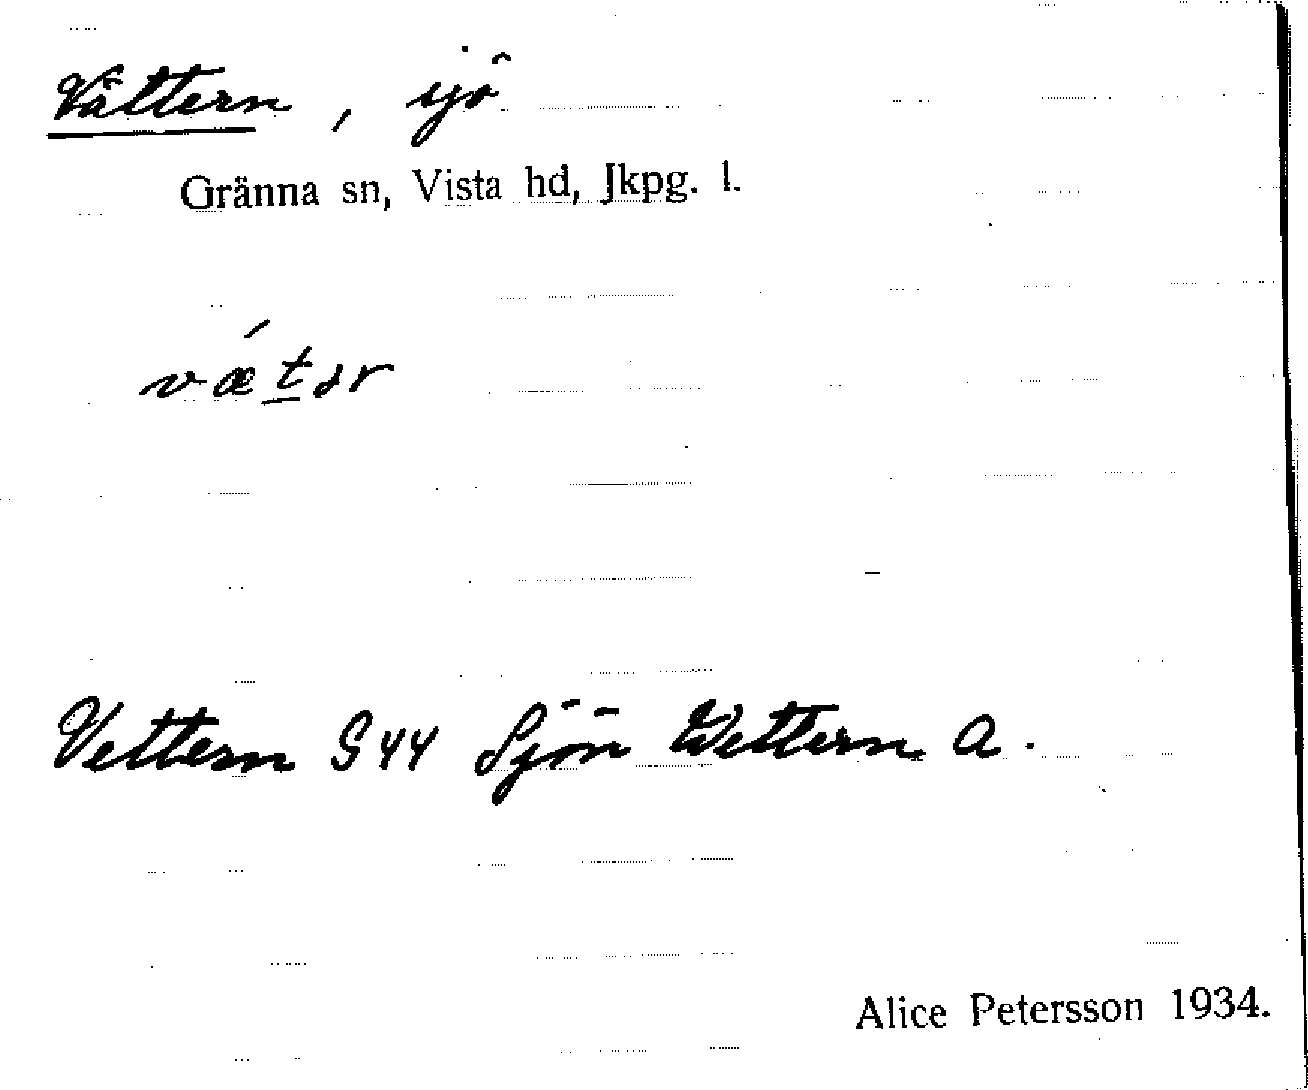 Vättern, sjö
Gränna sn, Vista hd, Jkpg. l.
vætər
Vettern S 44 Sjön Wettern a.
Alice Petersson 1934.